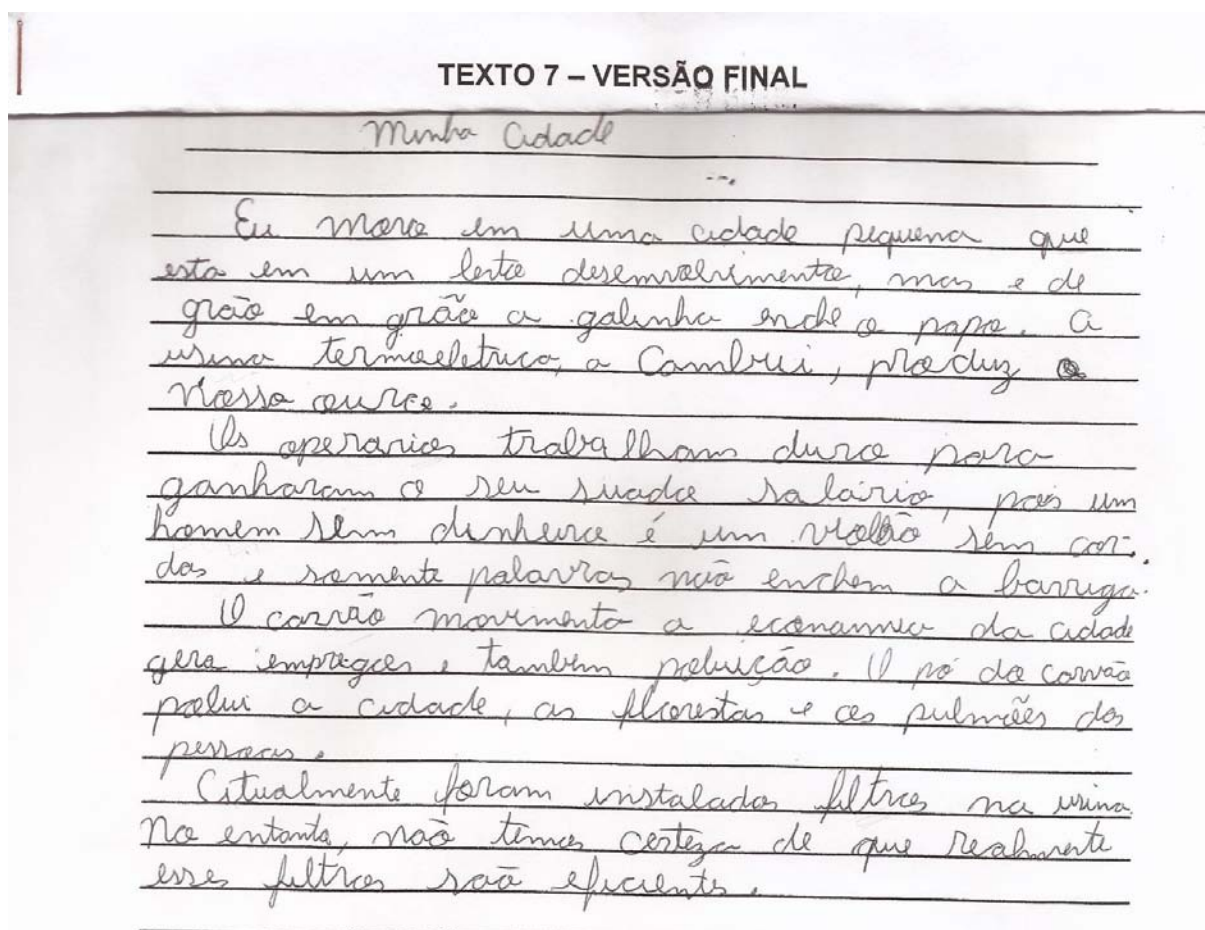 TEXTO 7 – VERSÃO FINAL
Minha Cidade
Eu moro em uma cidade pequena que
esta em um lento desenvolvimento, mas e de
grão em grão a galinha enche o papo. A
usina termoeletrica, a Cambuí, produz o
nosso ouro.
Os operarios trabalham duro para
ganharam o seu suado salário, pois um
homem sem dinheiro é um violão sem cor-
das e somente palavras não enchem a barriga.
O carvão movimenta a economia da cidade
gera empregos e também poluição. O pó do carvão
polui a cidade, as florestas e os pulmões das
pessoas.
Atualmente foram instalados filtros na usina.
No entanto, não temos certeza de que realmente
esses filtros são eficientes.